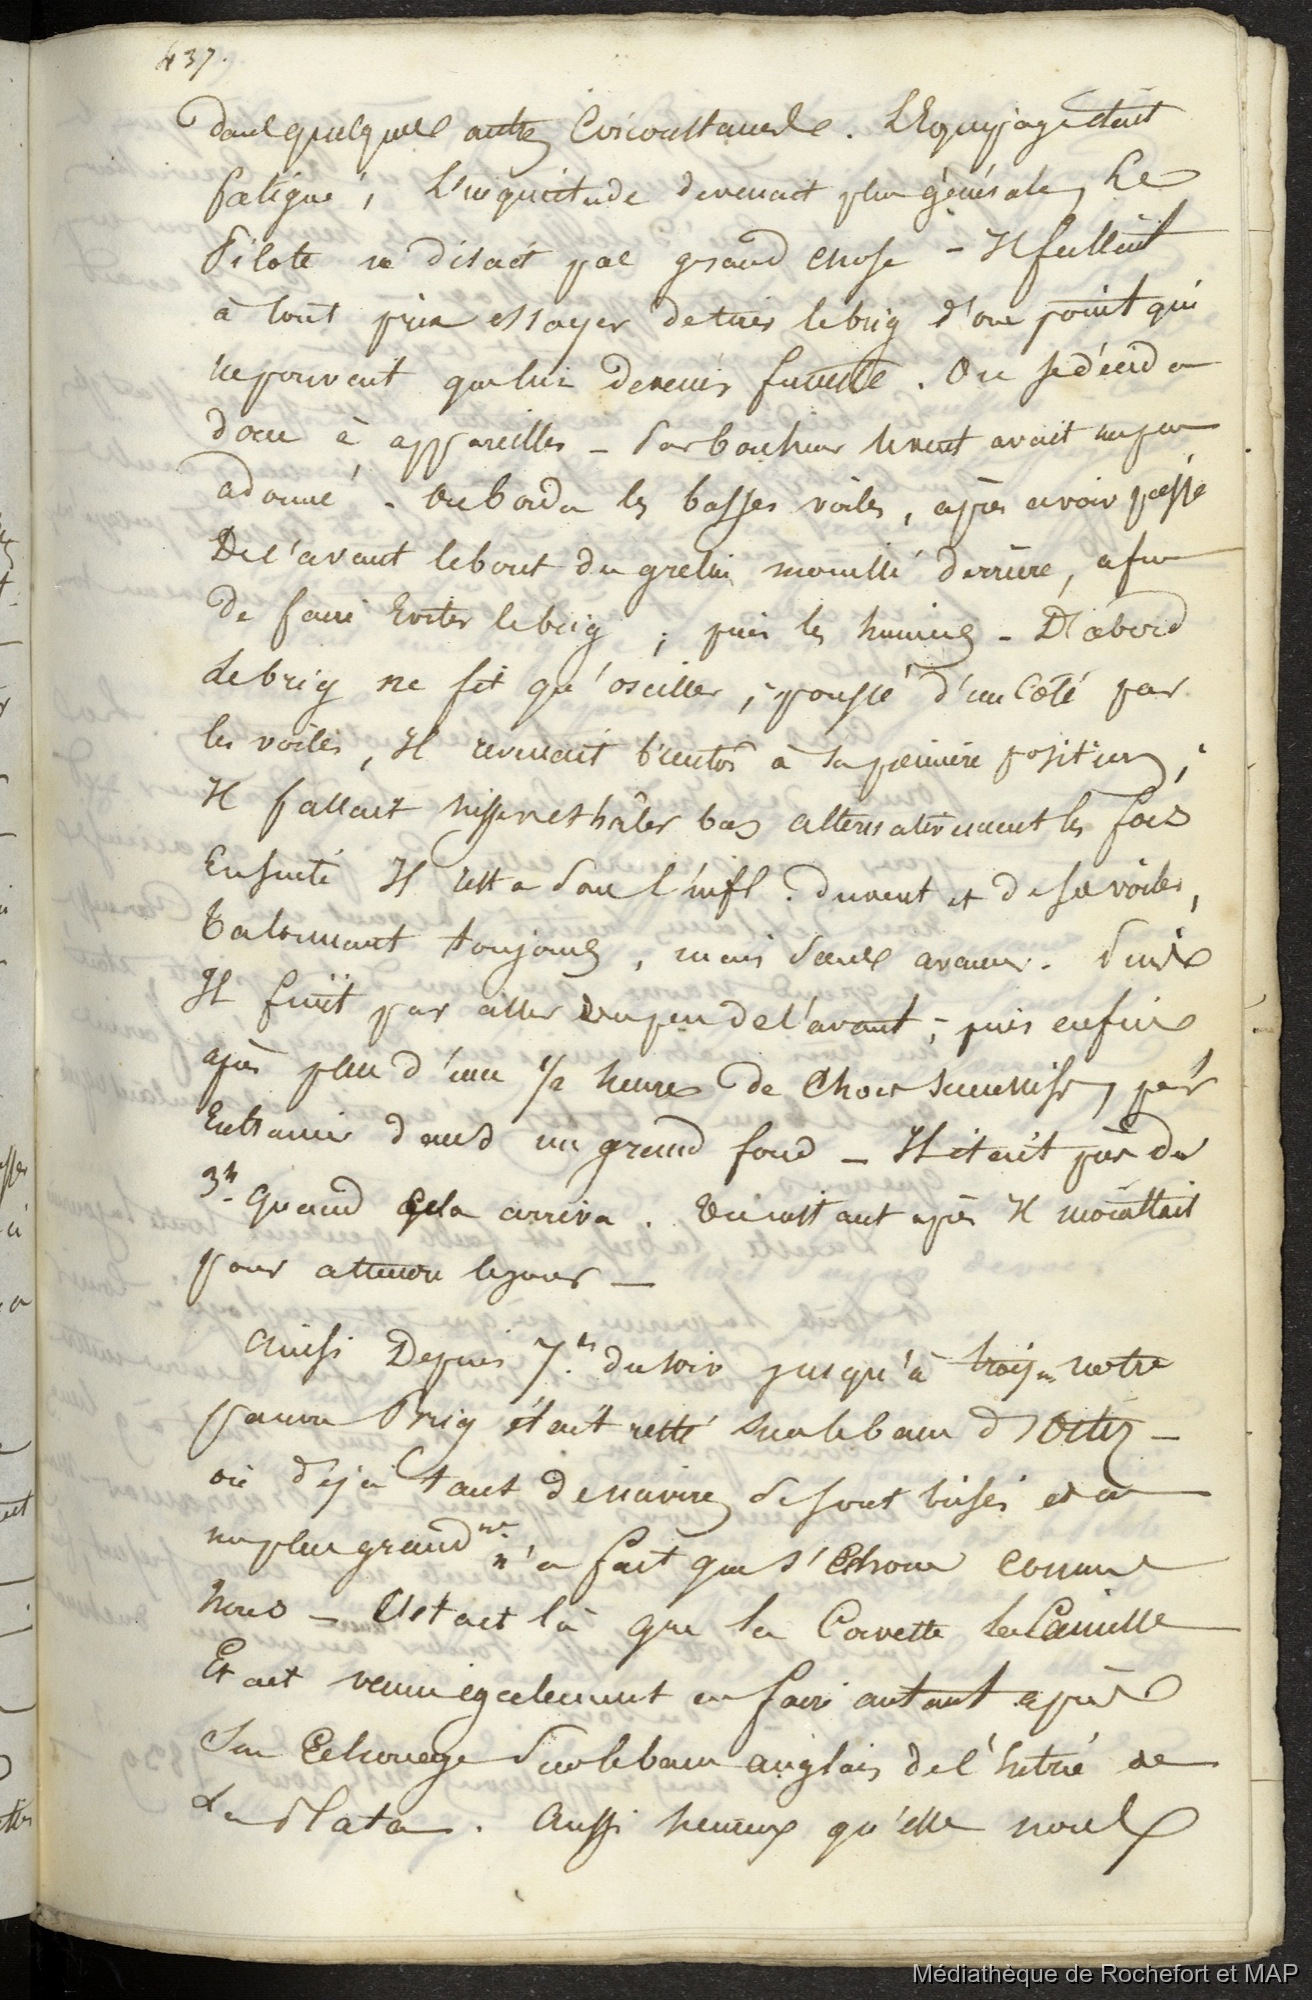 437.
dans quelques autres Circonstances. L'Equipage était
fatigué, L'inquiétude devenait plus générale, Le
Pilote ne disait pas grand chose - Il fallait
à tout prix essayer de tirer le brig d'une point qui
ne pouvait que lui devenir funeste. On se décida
donc à appareiller - Par bonheur le vent avait un peu
adonné. On borda les basses voiles, après avoir passé
De l'avant le bout du grelin mouillé derrière, afin
de faire Eviter le brig ; puis les huniers - D'abord
le brig ne fit qu'osciller ; poussé d'un Côté par
les voiles, Il revenait bientôt à sa première position ;
Il fallait hisser et hâler bas alternativement les focs
Ensuite Il resta sous l'infl. du vent et de ses voiles,
Talonnant toujours, mais sans avancer. Puis
Il finit par aller un peu de l'avant ; puis enfin
après plus d'une 1/2 heure de Chocs successifs, par
Entrainer dans un grand fond - Il était près de
3h. quand cela arriva. Un instant après Il mouillait
pour attendre le jour -
Ainsi Depuis 7.h du soir jusqu'à trois notre
pauvre Brig était resté sur le banc d'Ortiz -
où déjà tant de navires se sont brisés et où
un plus grand nre n'a fait que s'Echouer comme
nous - C'était là que la Corvette la Camille
Etait venue également en faire autant après
son Echouage sur le banc anglais de l'Entrée de
La Plata. Aussi heureux qu'elle nous